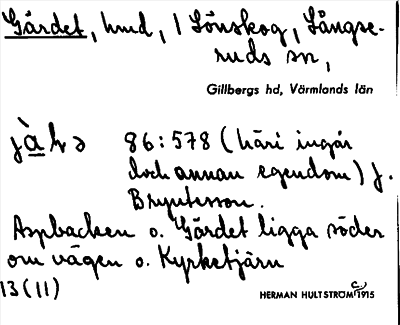 Gärdet, hmd, / Lönskog, Långse-
ruds sn,
Gillbergs hd, Värmlands län
86:578 (häri ingår
dock annan egendom) J.
Bryntesson.
Aspbacken o. Gärdet ligga söder
om vägen o. Kyrketjärn
13(11)
HERMAN HULTSTRÖM 1915